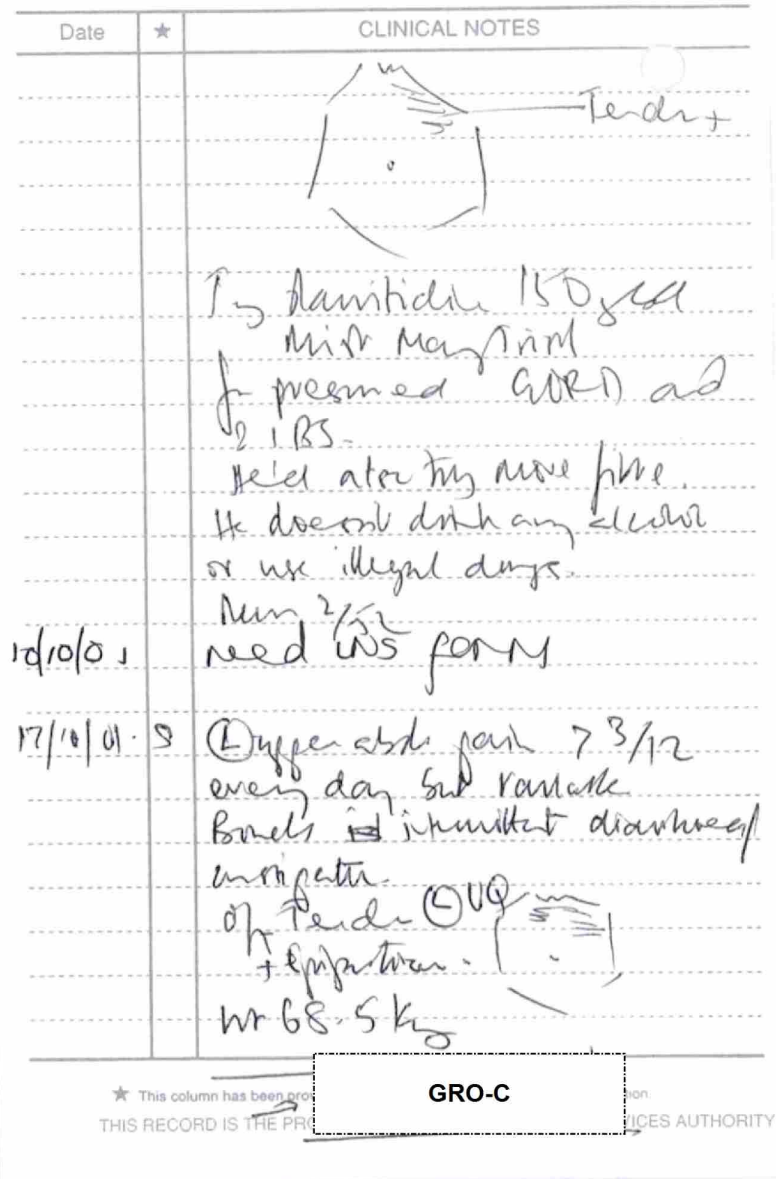 Date ★ CLINICAL NOTES
Tender +
Try Ranitidine 150
Mist Mag Trisil
for presumed GORD and
? IBS.
He'll also try more fibre.
He doesn't drink any alcohol
or use illegal drugs.
2/52
10/10/01 need INS form
17/10/01. S Ⓛ upper abdo pain > 3/12
every day but variable
Bowels intermittent diarrhoea/
constipation.
O/ Tender Ⓛ UQ
+ Epigastrium.
Wt 68.5 Kg
★ This column has been prov
GRO-C
THIS RECORD IS THE PRO
VICES AUTHORITY